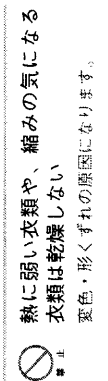 禁止
熱に弱い衣類や、縮みの気になる
衣類は乾燥しない
変色・形くずれの原因になります。